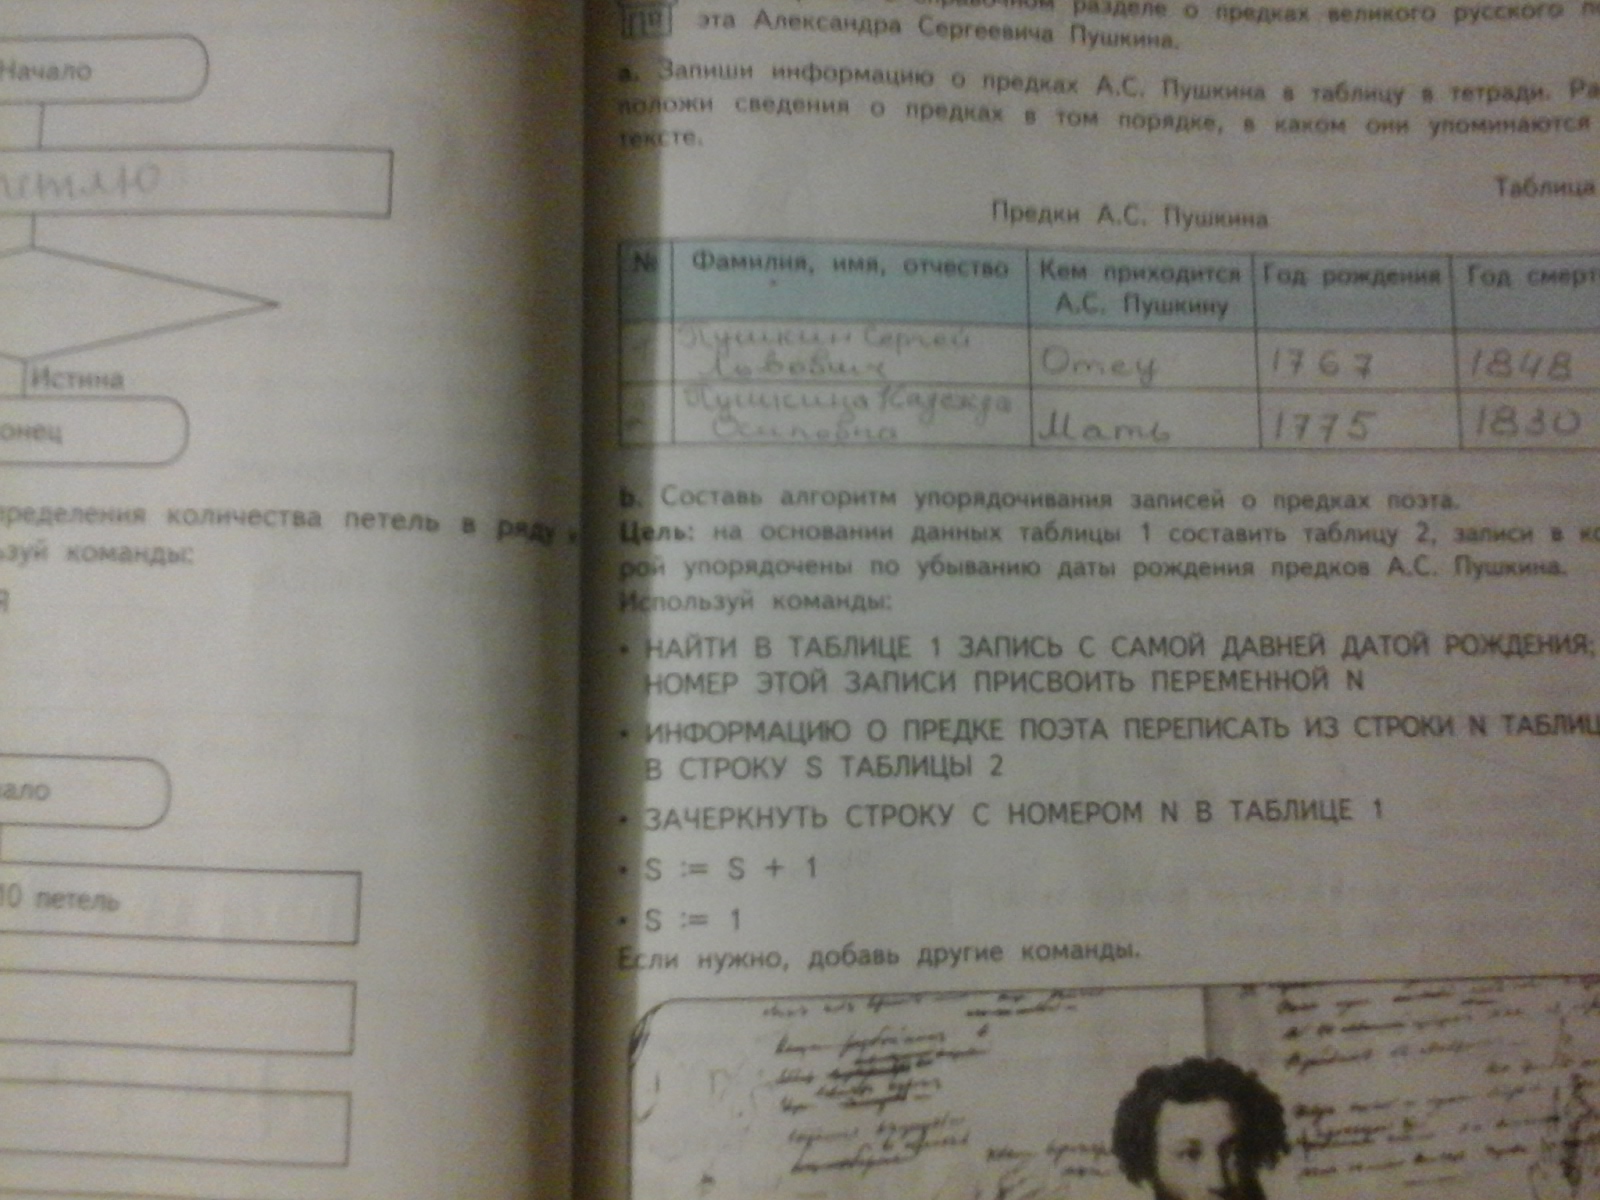 Начало
петлю
Истина
онец
ределения количества петель в ряду
ьзуй команды:
Я
ало
10 петель
справочном разделе о предках великого русского
эта Александра Сергеевича Пушкина.
а. Запиши информацию о предках А.С. Пушкина в таблицу в тетради. Ра
положи сведения о предках в том порядке, в каком они упоминаются
тексте.
Таблица
Предки А.С. Пушкина
№ Фамилия, имя, отчество Кем приходится А.С. Пушкину Год рождения Год смерт
Пушкин Сергей Львович Отец 1767 1848
Пушкина Надежда Осиповна Мать 1775 1830
b. Составь алгоритм упорядочивания записей о предках поэта.
Цель: на основании данных таблицы 1 составить таблицу 2, записи в ко
рой упорядочены по убыванию даты рождения предков А.С. Пушкина.
Используй команды:
• НАЙТИ В ТАБЛИЦЕ 1 ЗАПИСЬ С САМОЙ ДАВНЕЙ ДАТОЙ РОЖДЕНИЯ;
НОМЕР ЭТОЙ ЗАПИСИ ПРИСВОИТЬ ПЕРЕМЕННОЙ N
• ИНФОРМАЦИЮ О ПРЕДКЕ ПОЭТА ПЕРЕПИСАТЬ ИЗ СТРОКИ N ТАБЛИЦ
В СТРОКУ S ТАБЛИЦЫ 2
• ЗАЧЕРКНУТЬ СТРОКУ С НОМЕРОМ N В ТАБЛИЦЕ 1
• S := S + 1
• S := 1
Если нужно, добавь другие команды.